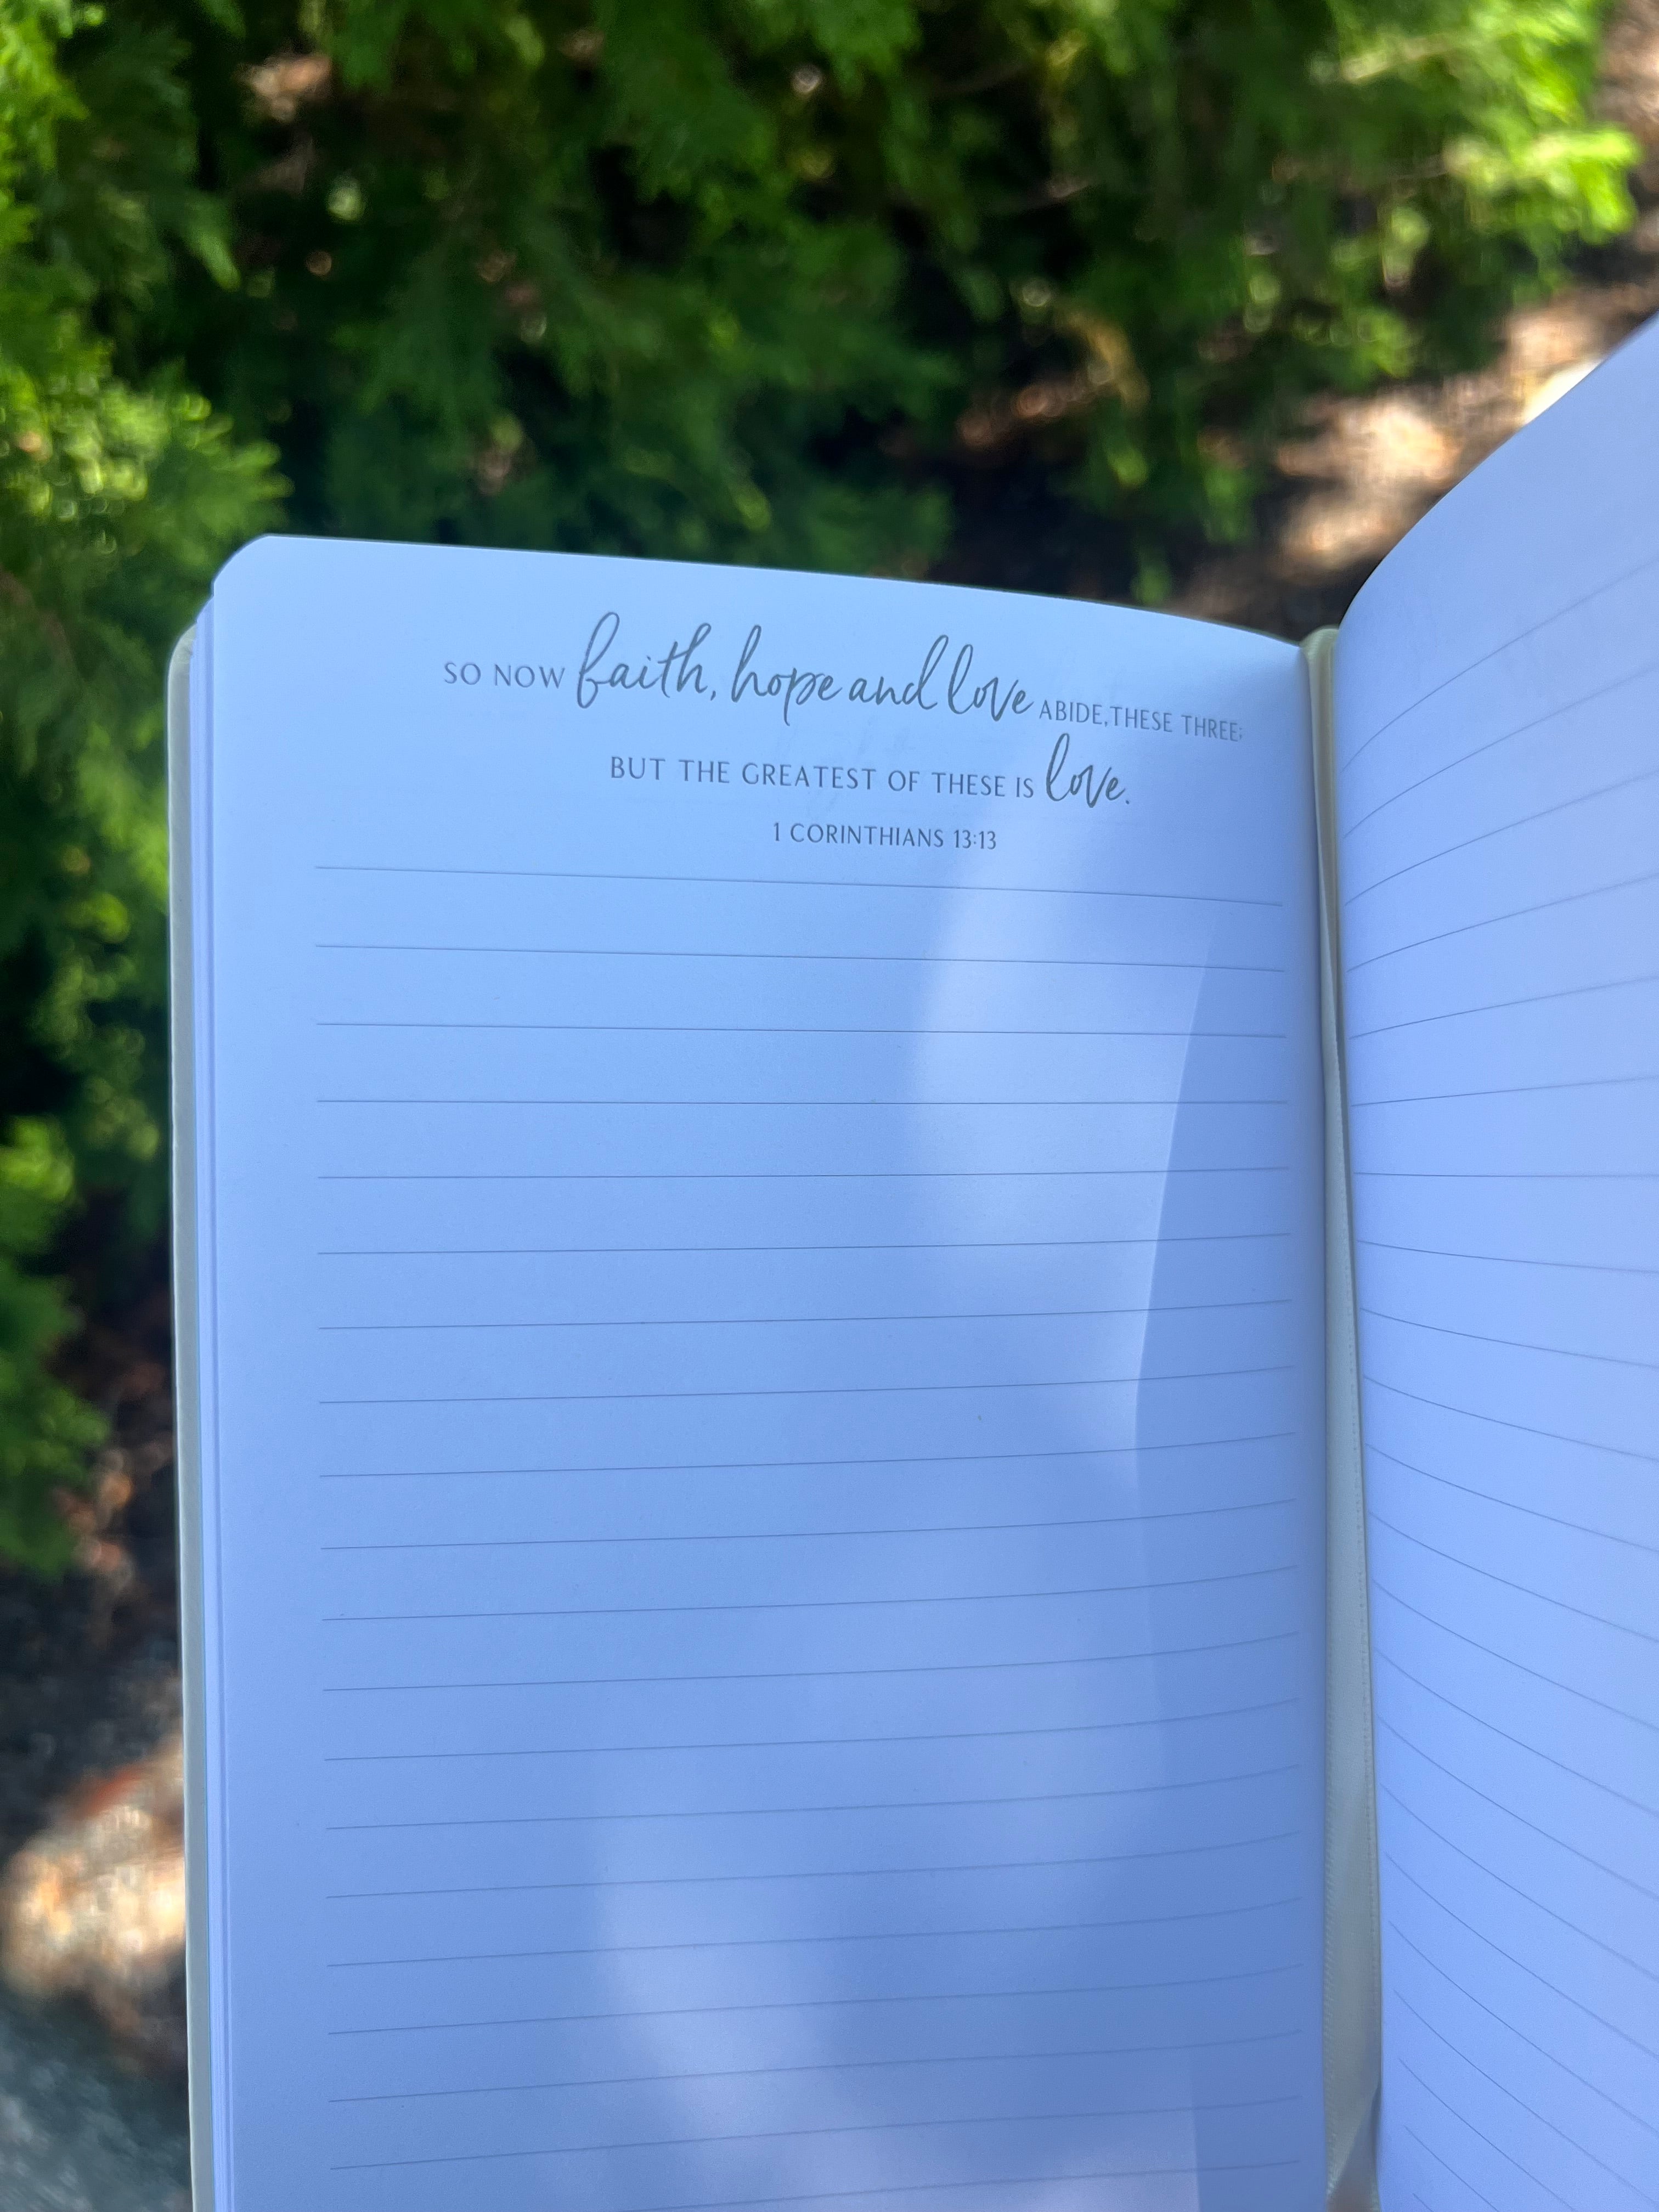 SO NOW faith, hope and love ABIDE, THESE THREE;
BUT THE GREATEST OF THESE IS love.
1 CORINTHIANS 13:13